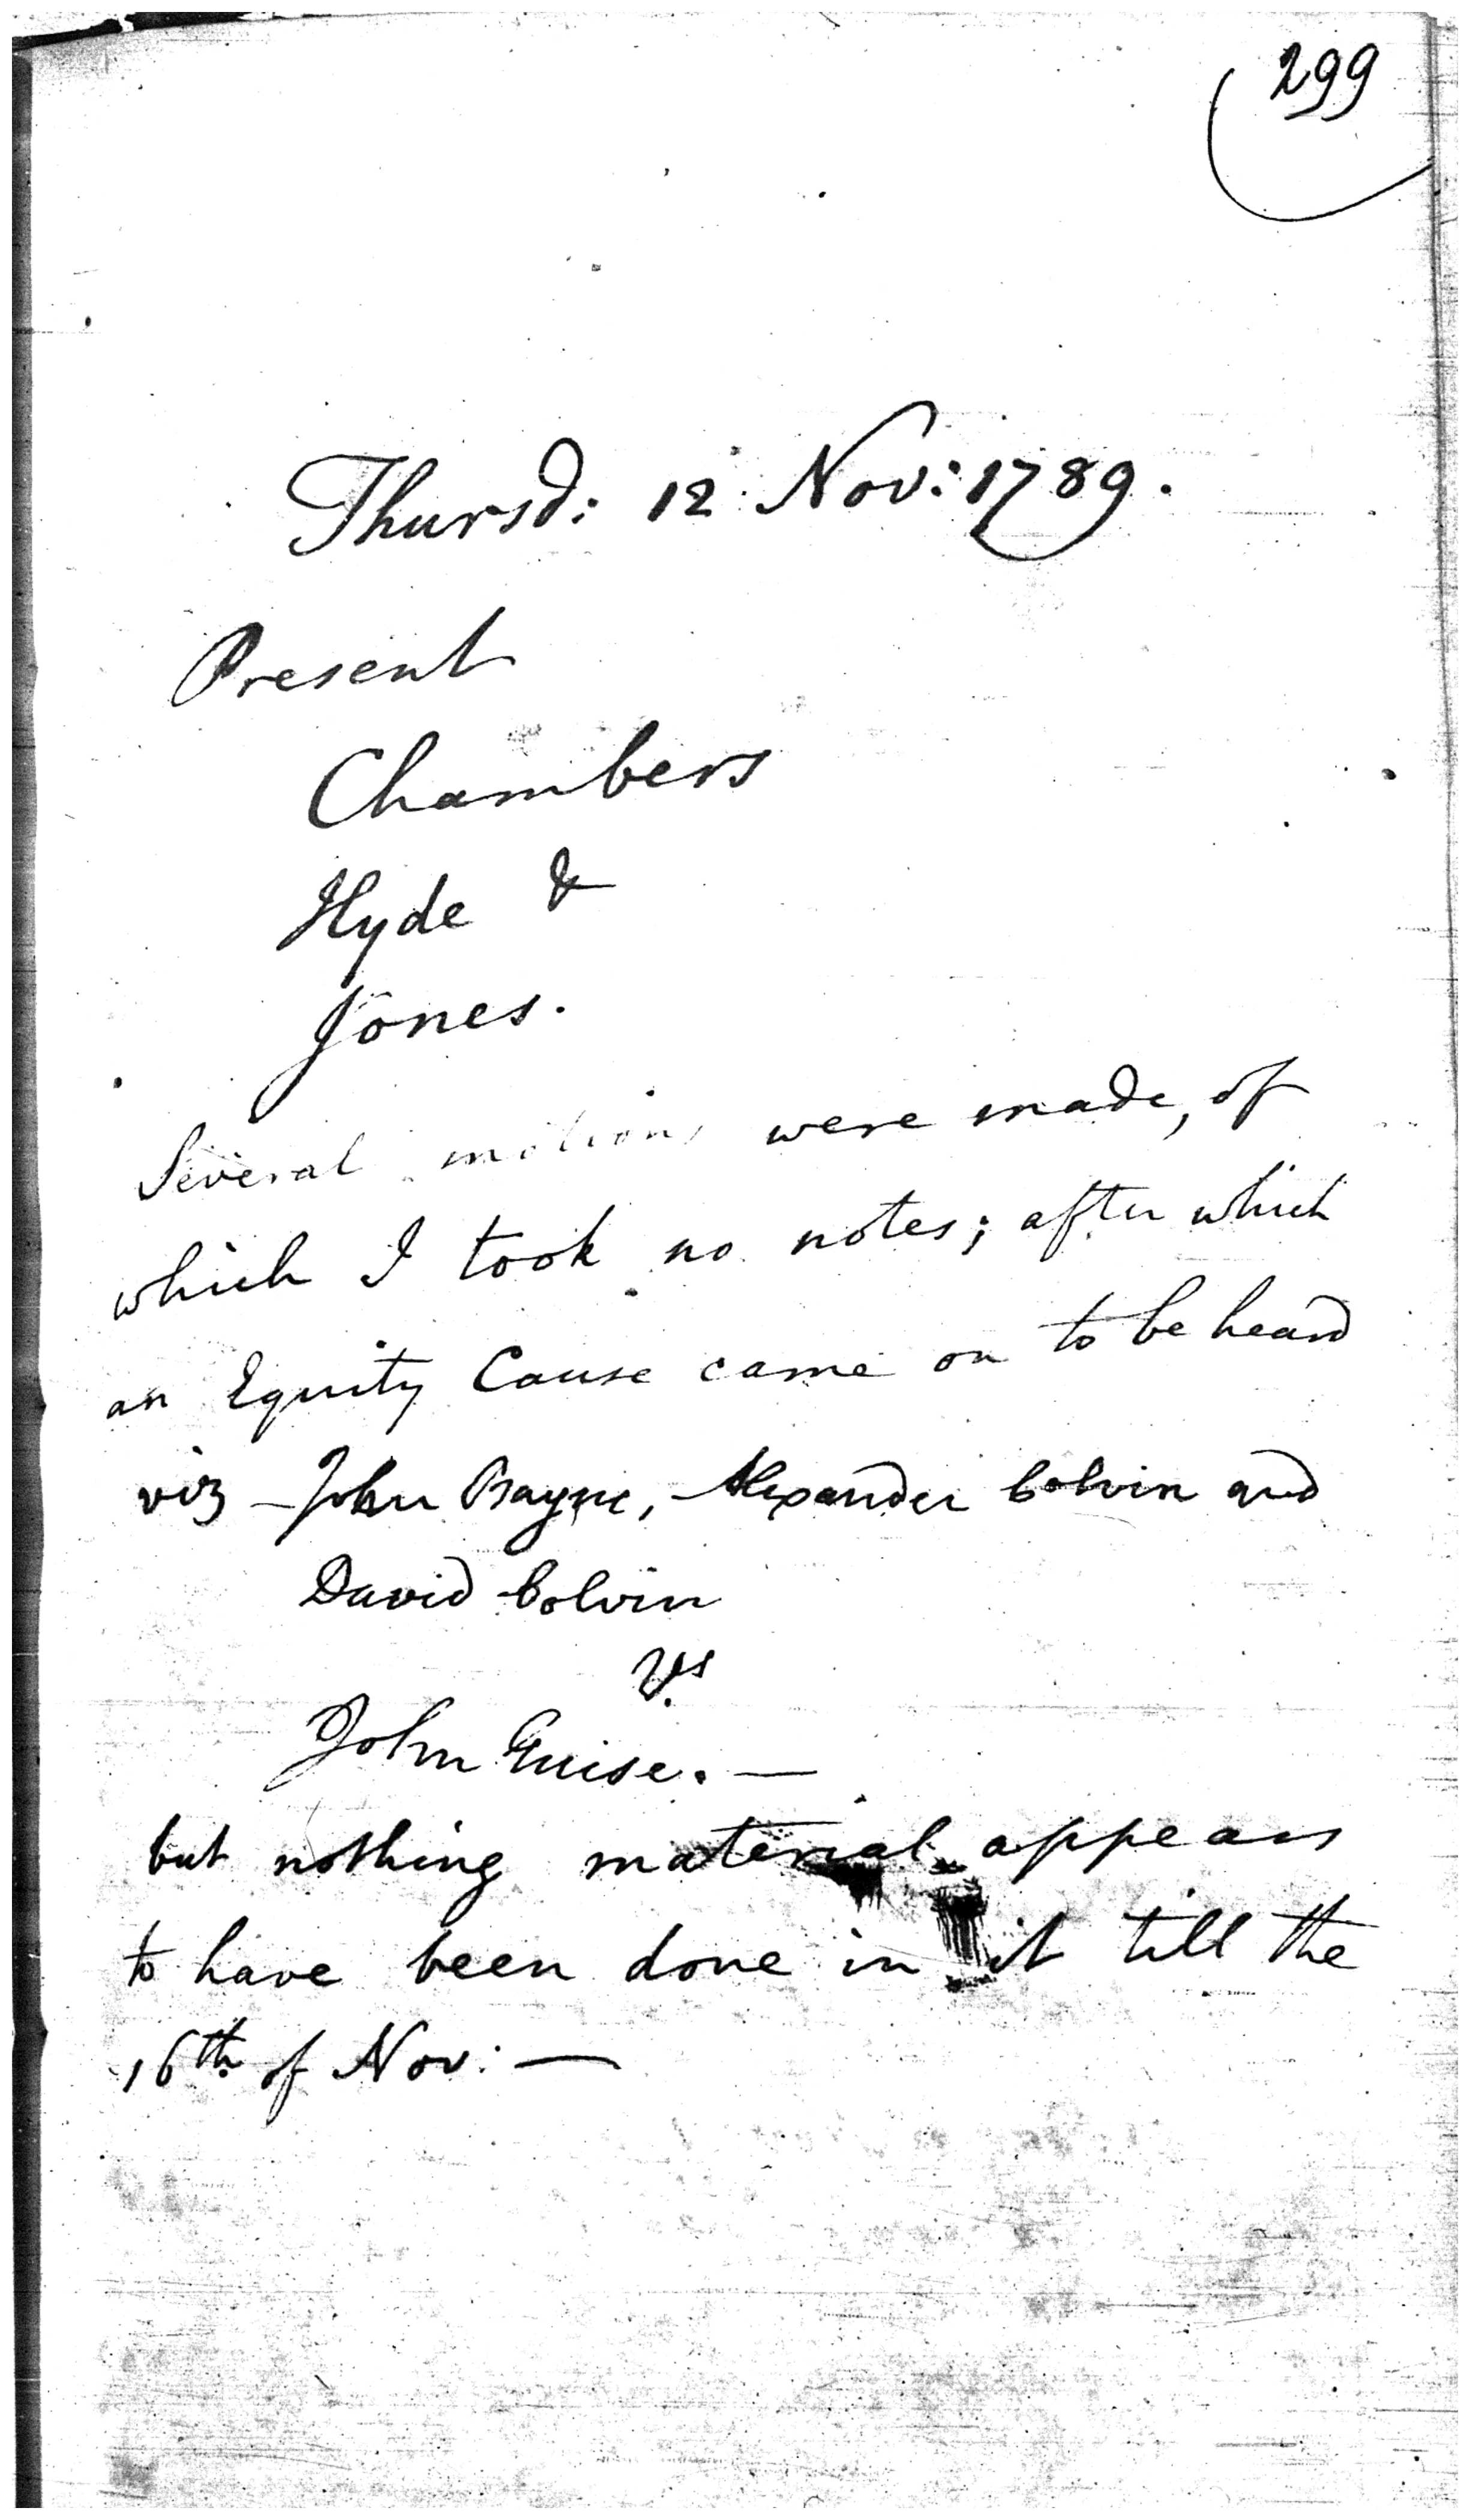 299
Thursd: 12 Nov: 1789.
Present
Chambers
Hyde &
Jones.
Several motions were made, of
which I took no notes; after which
an Equity Cause came on to be heard
viz John Bayne, Alexander Colvin and
David Colvin
Vs
John Guise. —
but nothing material appears
to have been done in it till the
16th of Nov: —